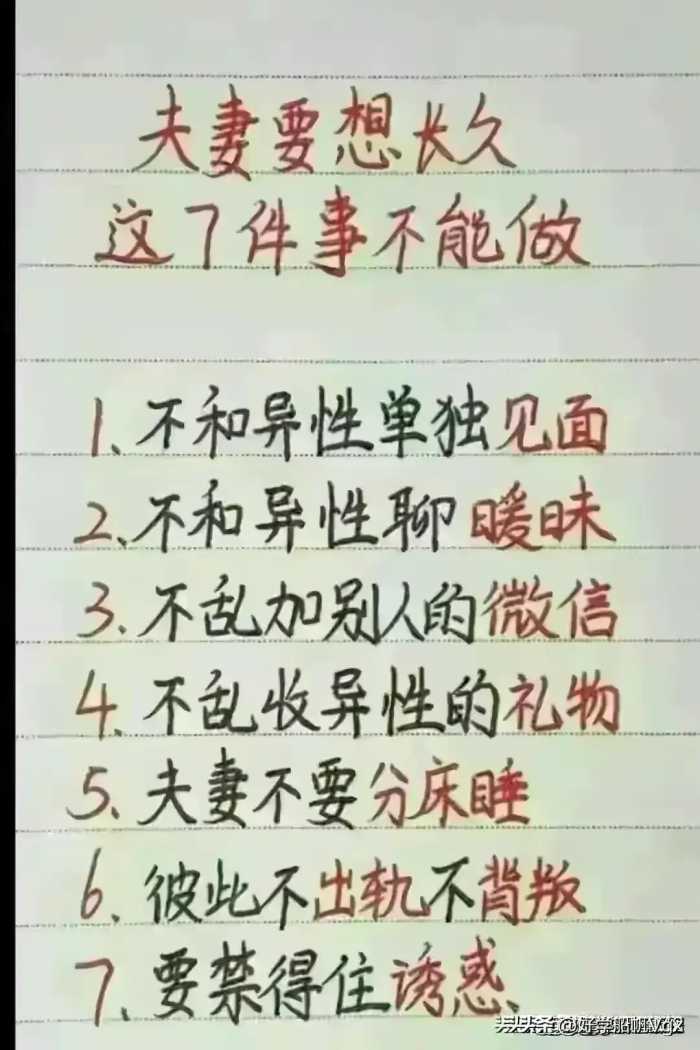 夫妻要想长久
这7件事不能做
1、不和异性单独见面
2、不和异性聊暖昧
3、不乱加别人的微信
4、不乱收异性的礼物
5、夫妻不要分床睡
6、彼此不出轨不背叛
7、要禁得住诱惑、
头条@好学船帆